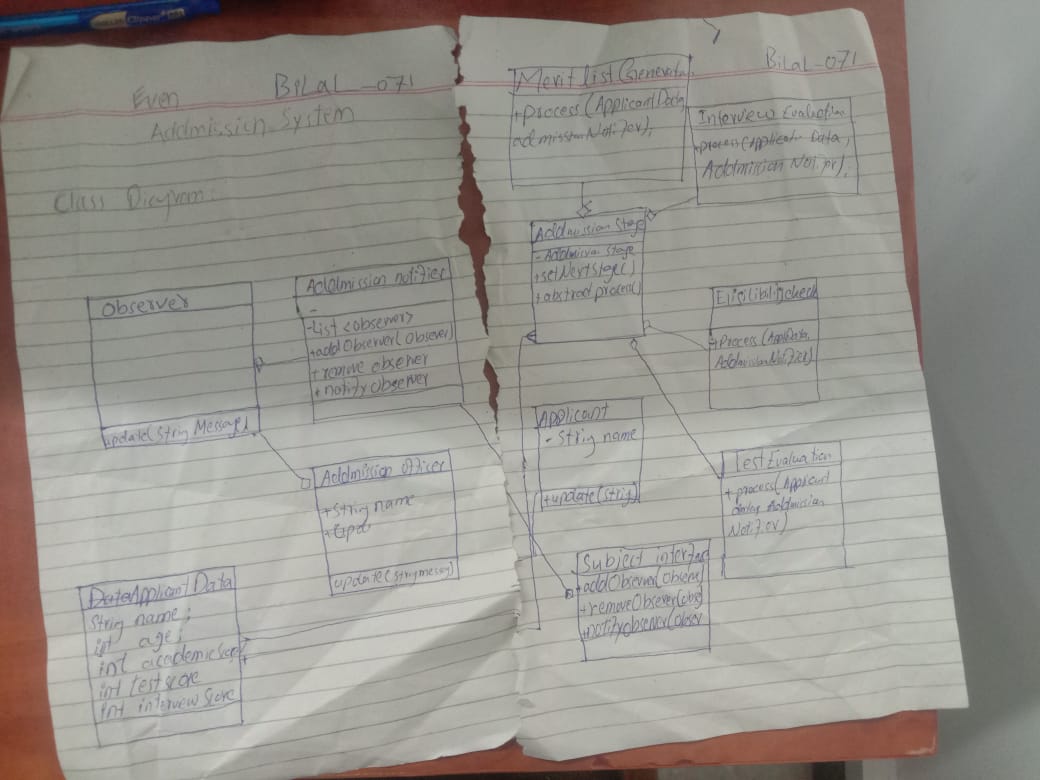 BiLaL -071
Even
Addmission System
Class Diagram:
Observer
update(String Message)
Addmission notifier
-
-List <observer>
+addObserver(Observer)
+remove observer
+notify observer
Addmission officer
+String name
update(string messag)
Applicant Data
String name;
int age;
int academic
int test score
int interview score
BiLaL-071
Merit list Generator
+process(ApplicantData,
admissionNotifier);
Interview Evaluation
+process(Applicant Data,
Addmission Notifier);
Addmission Stage
- Addmission stage
+setNextStage()
+abstract process()
Eligilibilitycheck
+Process(AppData,
Applicant
- String name
+update(String)
Test Evaluation
+process(Applicant
Addmission
Subject interface
+addObserver(observer)
+removeObserver(obse)
+notifyobserver(obser